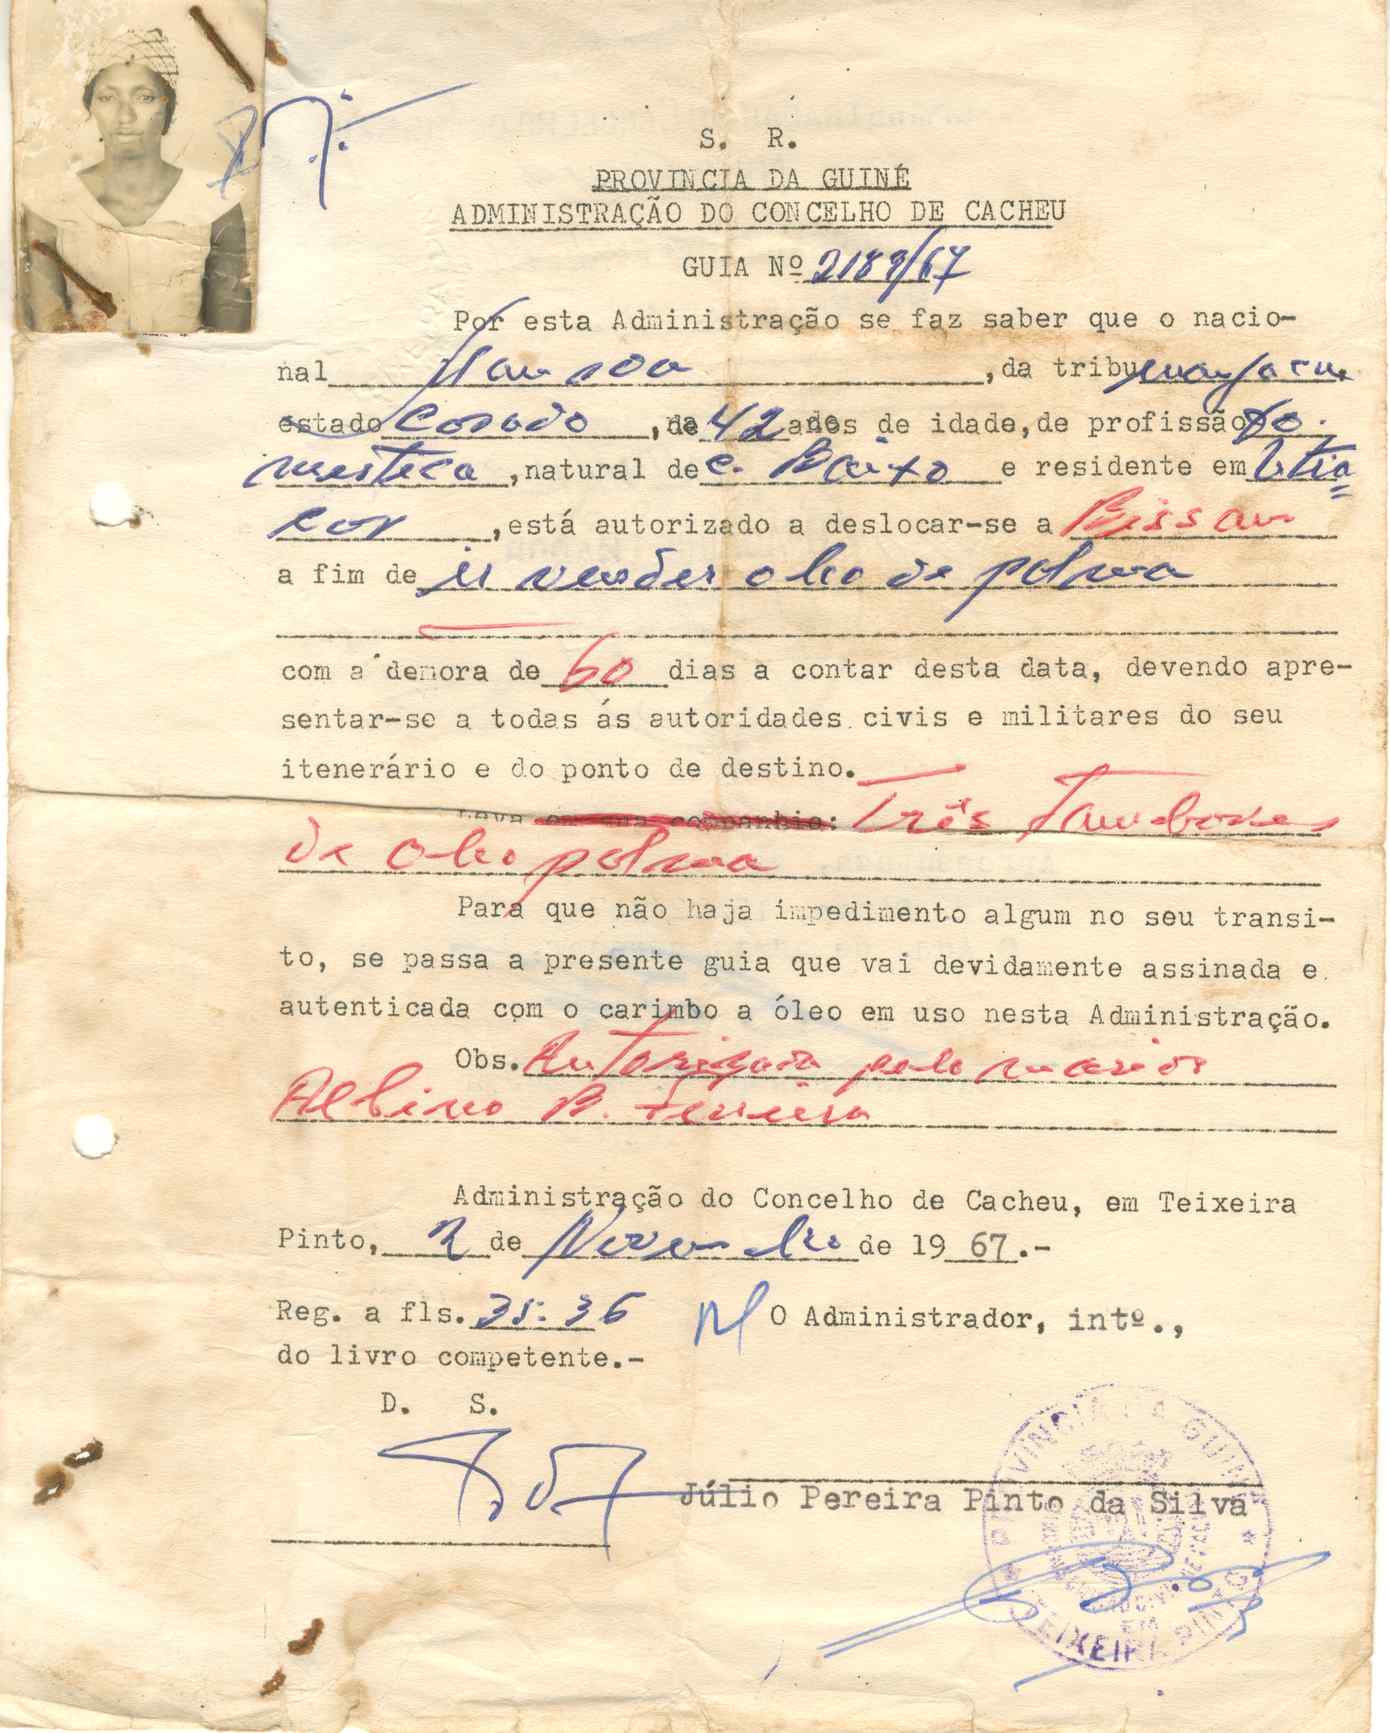 S. R.
PROVINCIA DA GUINÉ
ADMINISTRAÇÃO DO CONCELHO DE CACHEU
GUIA Nº 2189/67
Por esta Administração se faz saber que o nacio-
nal , da tribu manjaca
estado casado , de 42 anos de idade, de profissão do-
mestica , natural de C. Baixo e residente em Utia
cor , está autorizado a deslocar-se a Bissau
a fim de ir vender oleo de palma
com a demora de 60 dias a contar desta data, devendo apre-
sentar-se a todas ás autoridades civis e militares do seu
itenerário e do ponto de destino.
Leva em sua companhia: Três Tambores
de oleo palma
Para que não haja impedimento algum no seu transi-
to, se passa a presente guia que vai devidamente assinada e
autenticada com o carimbo a óleo em uso nesta Administração.
Obs. Autorizada pelo marido
Albino B. Ferreira
Administração do Concelho de Cacheu, em Teixeira
Pinto, 2 de Novembro de 19 67.-
Reg. a fls. 35-36 O Administrador, intº.,
do livro competente.-
D. S.
Júlio Pereira Pinto da Silva
PROVINCIA DA GUINÉ
TEIXEIRA PINTO